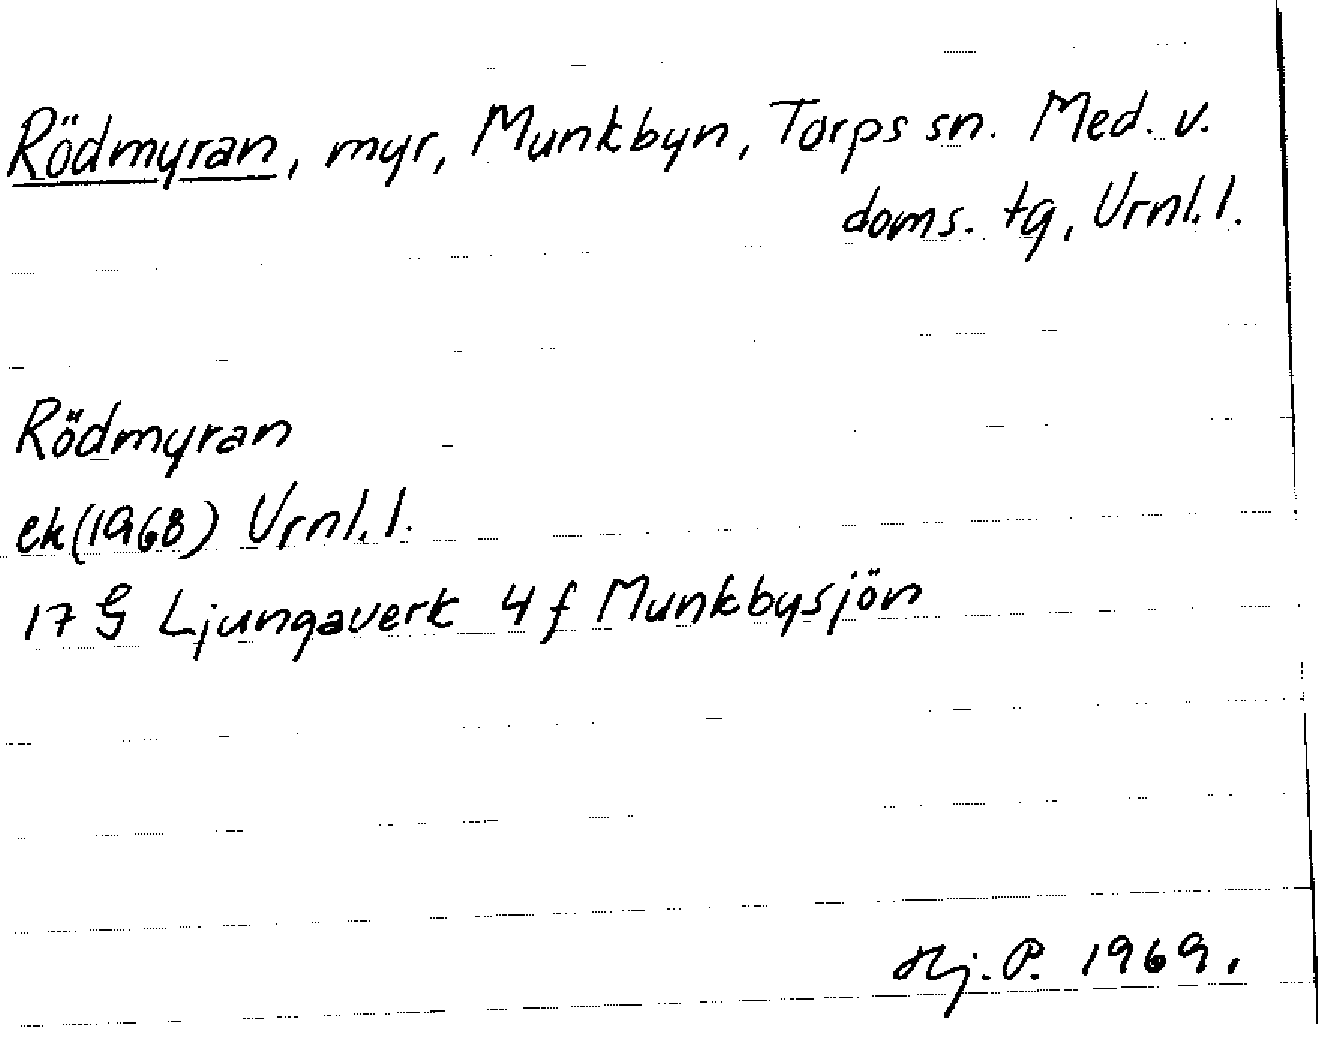 Rödmyran, myr, Munkbyn, Torps sn. Med. v.
doms. tg, Vrnl. l.
Rödmyran
ek (1968) Vrnl. l.
17 G Ljungaverk 4 f Munkbysjön
Hj. P. 1969.